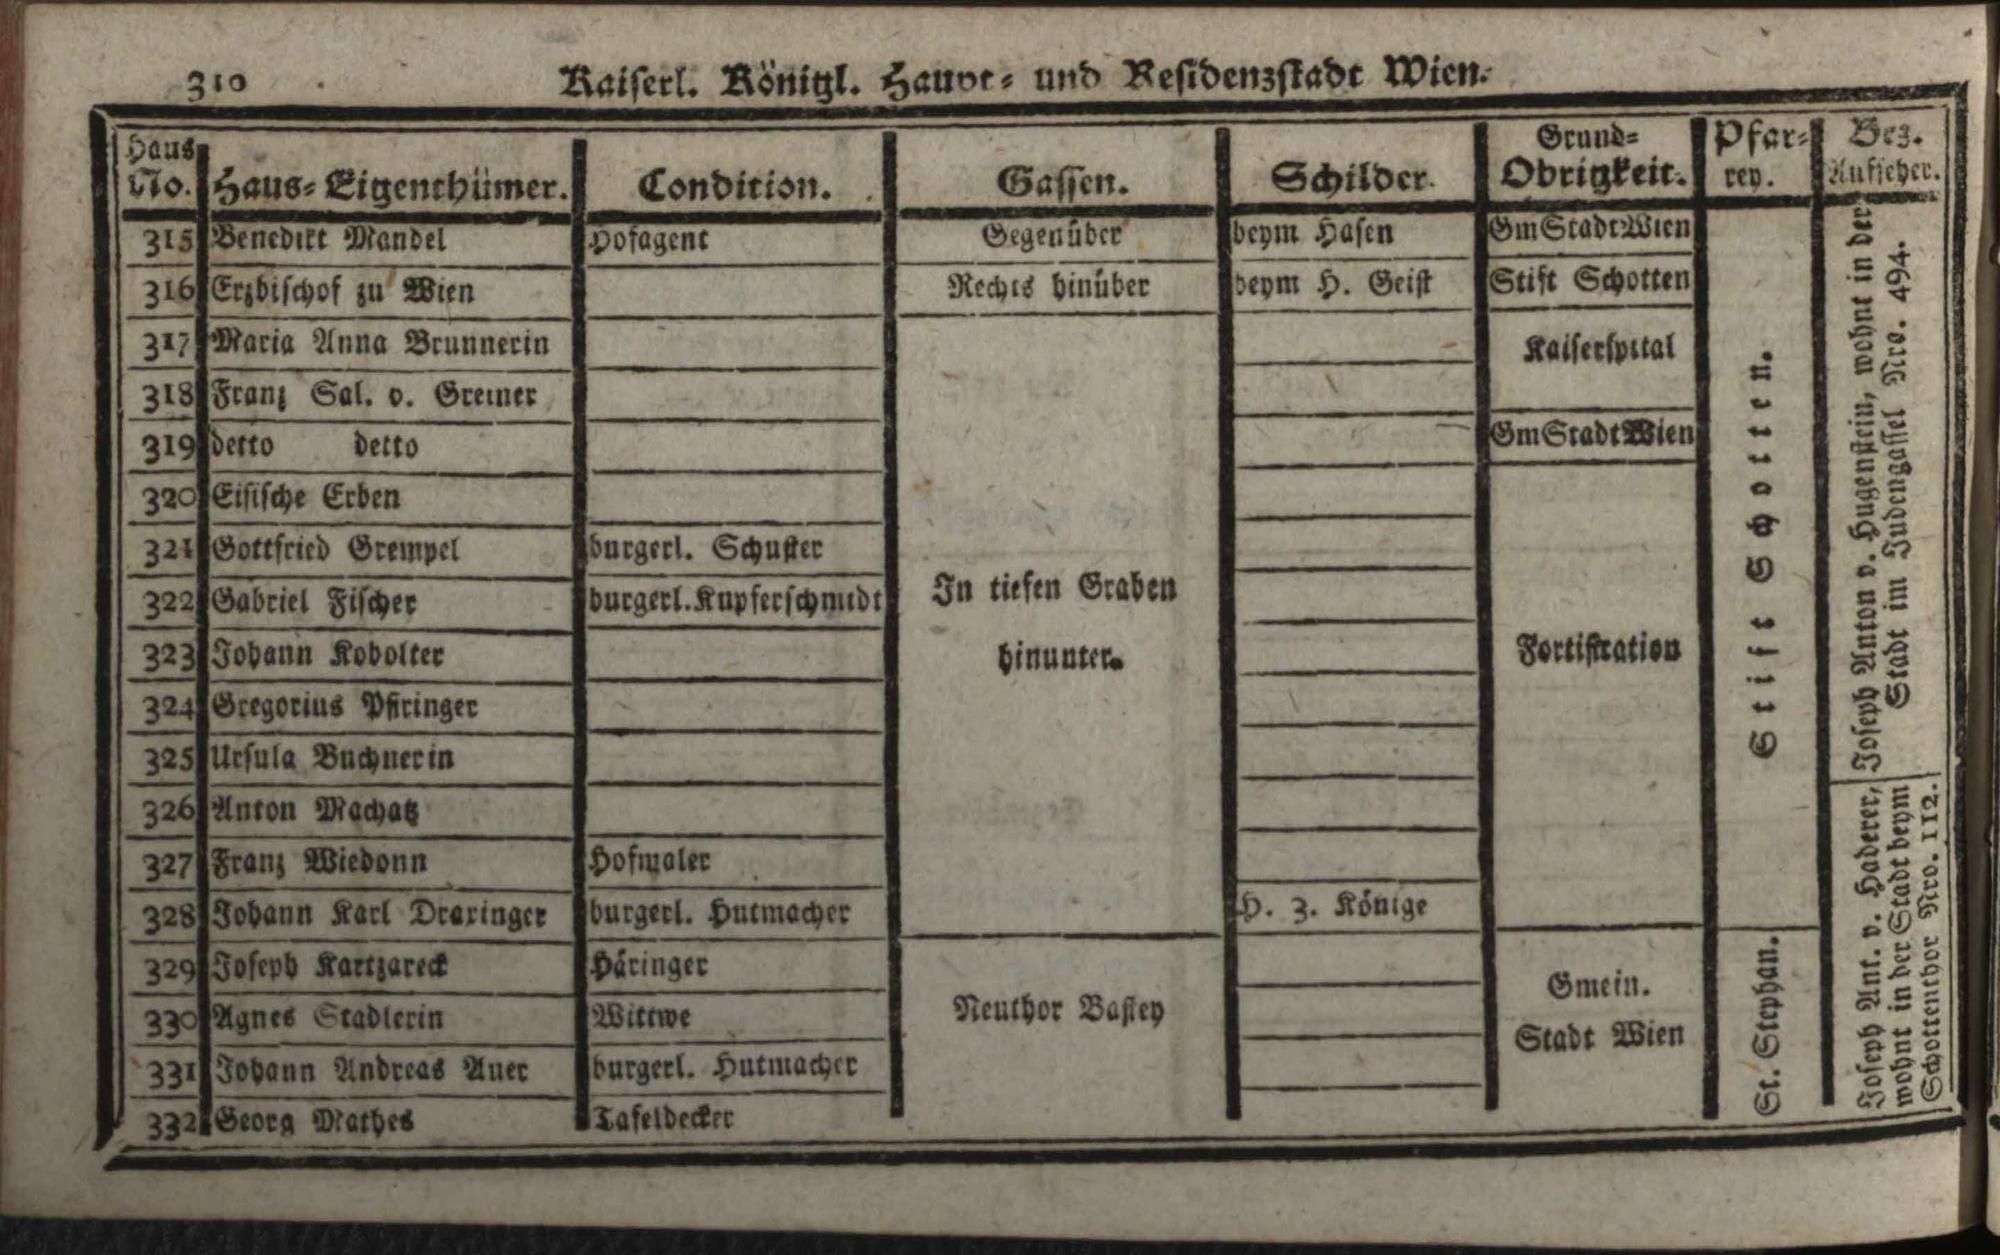 310
Kaiserl. Königl. Haupt- und Residenzstadt Wien.
Haus No. Haus-Eigenthümer. Condition. Gassen. Schilder. Grund-Obrigkeit. Pfar-rey. Bez. Aufseher.
315 Benedikt Mandel Hofagent Gegenüber beym Hasen GmStadtWien
316 Erzbischof zu Wien Rechts hinüber beym H. Geist Stift Schotten
317 Maria Anna Brunnerin Kaiserspital
318 Franz Sal. v. Greiner
319 detto detto GmStadtWien
320 Eisische Erben
321 Gottfried Grempel burgerl. Schuster
322 Gabriel Fischer burgerl. Kupferschmidt In tiefen Graben
323 Johann Kobolter hinunter. Fortifikation
324 Gregorius Pfiringer
325 Ursula Buchnerin
326 Anton Machatz
327 Franz Wiedonn Hofmaler
328 Johann Karl Draxinger burgerl. Hutmacher H. 3. Könige
329 Joseph Kartzareck Häringer Gmein.
330 Agnes Stadlerin Wittwe Neuthor Bastey Stadt Wien
331 Johann Andreas Auer burgerl. Hutmacher
332 Georg Mathes Tafeldecker
Stift Schotten.
St. Stephan.
Joseph Anton v. Hugenstein, wohnt in der
Stadt im Judengassel Nro. 494.
Joseph Ant. v. Haderer,
wohnt in der Stadt beym
Schottenthor Nro. 112.